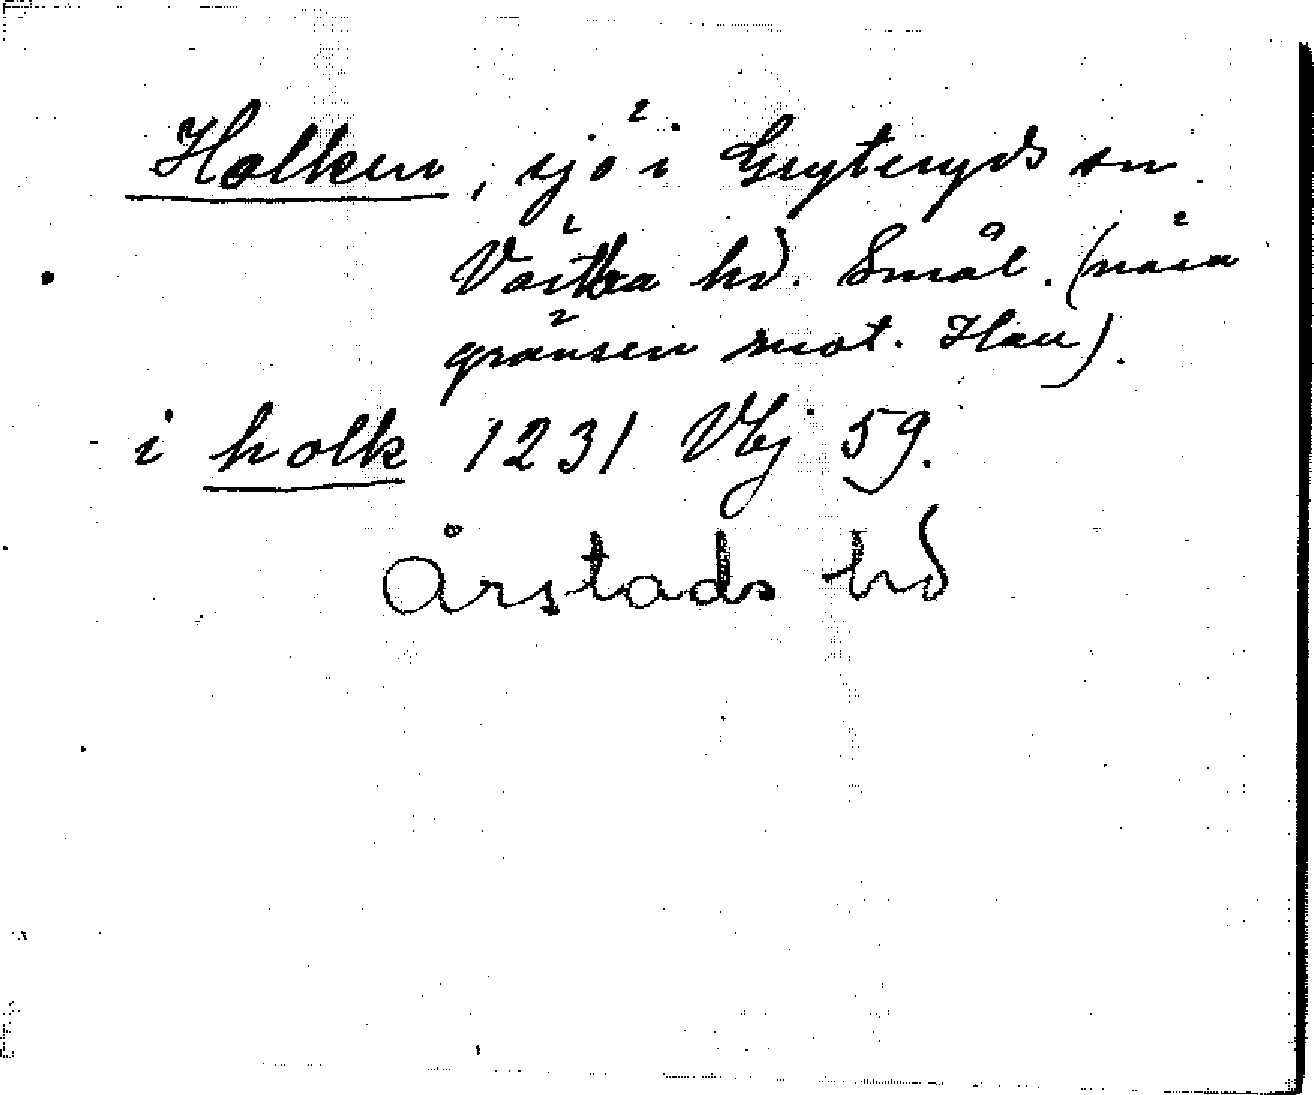 Holken, sjö i Gryteryds sn
Västbo hd. Smål. (nära
gränsen mot. Hall).
i holk 1231 VHj 59.
Årstads hd